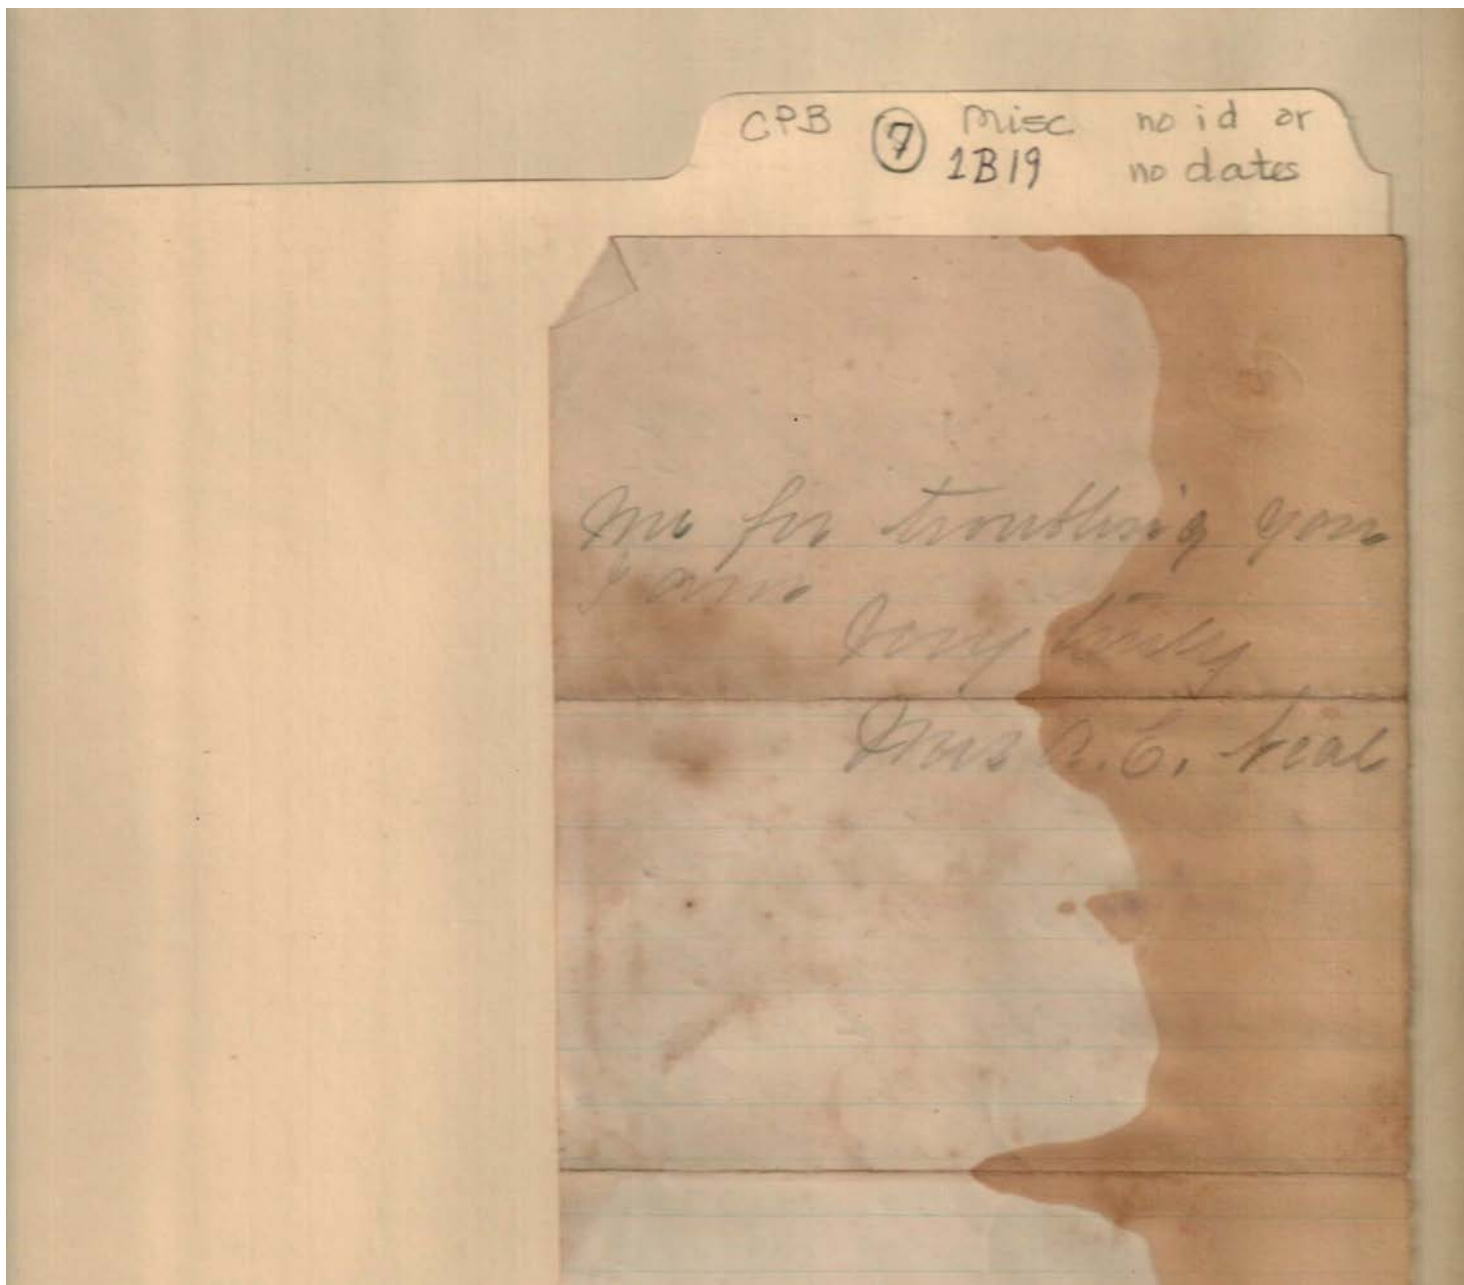 CPB 7 Misc no id or
1B19 no dates
me for troubling you
I am
Very truly
Mrs A. C. Neal